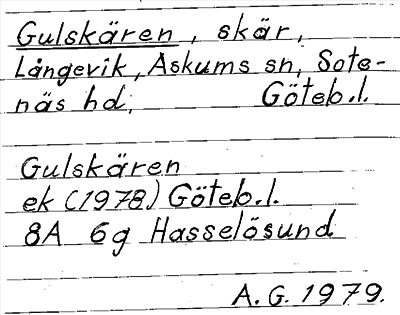 Gulskären, skär,
Långevik, Askums sn, Sote-
näs hd, Göteb.l.
Gulskären
ek (1978) Göteb.l.
8A 6g Hasselösund
A.G. 1979.